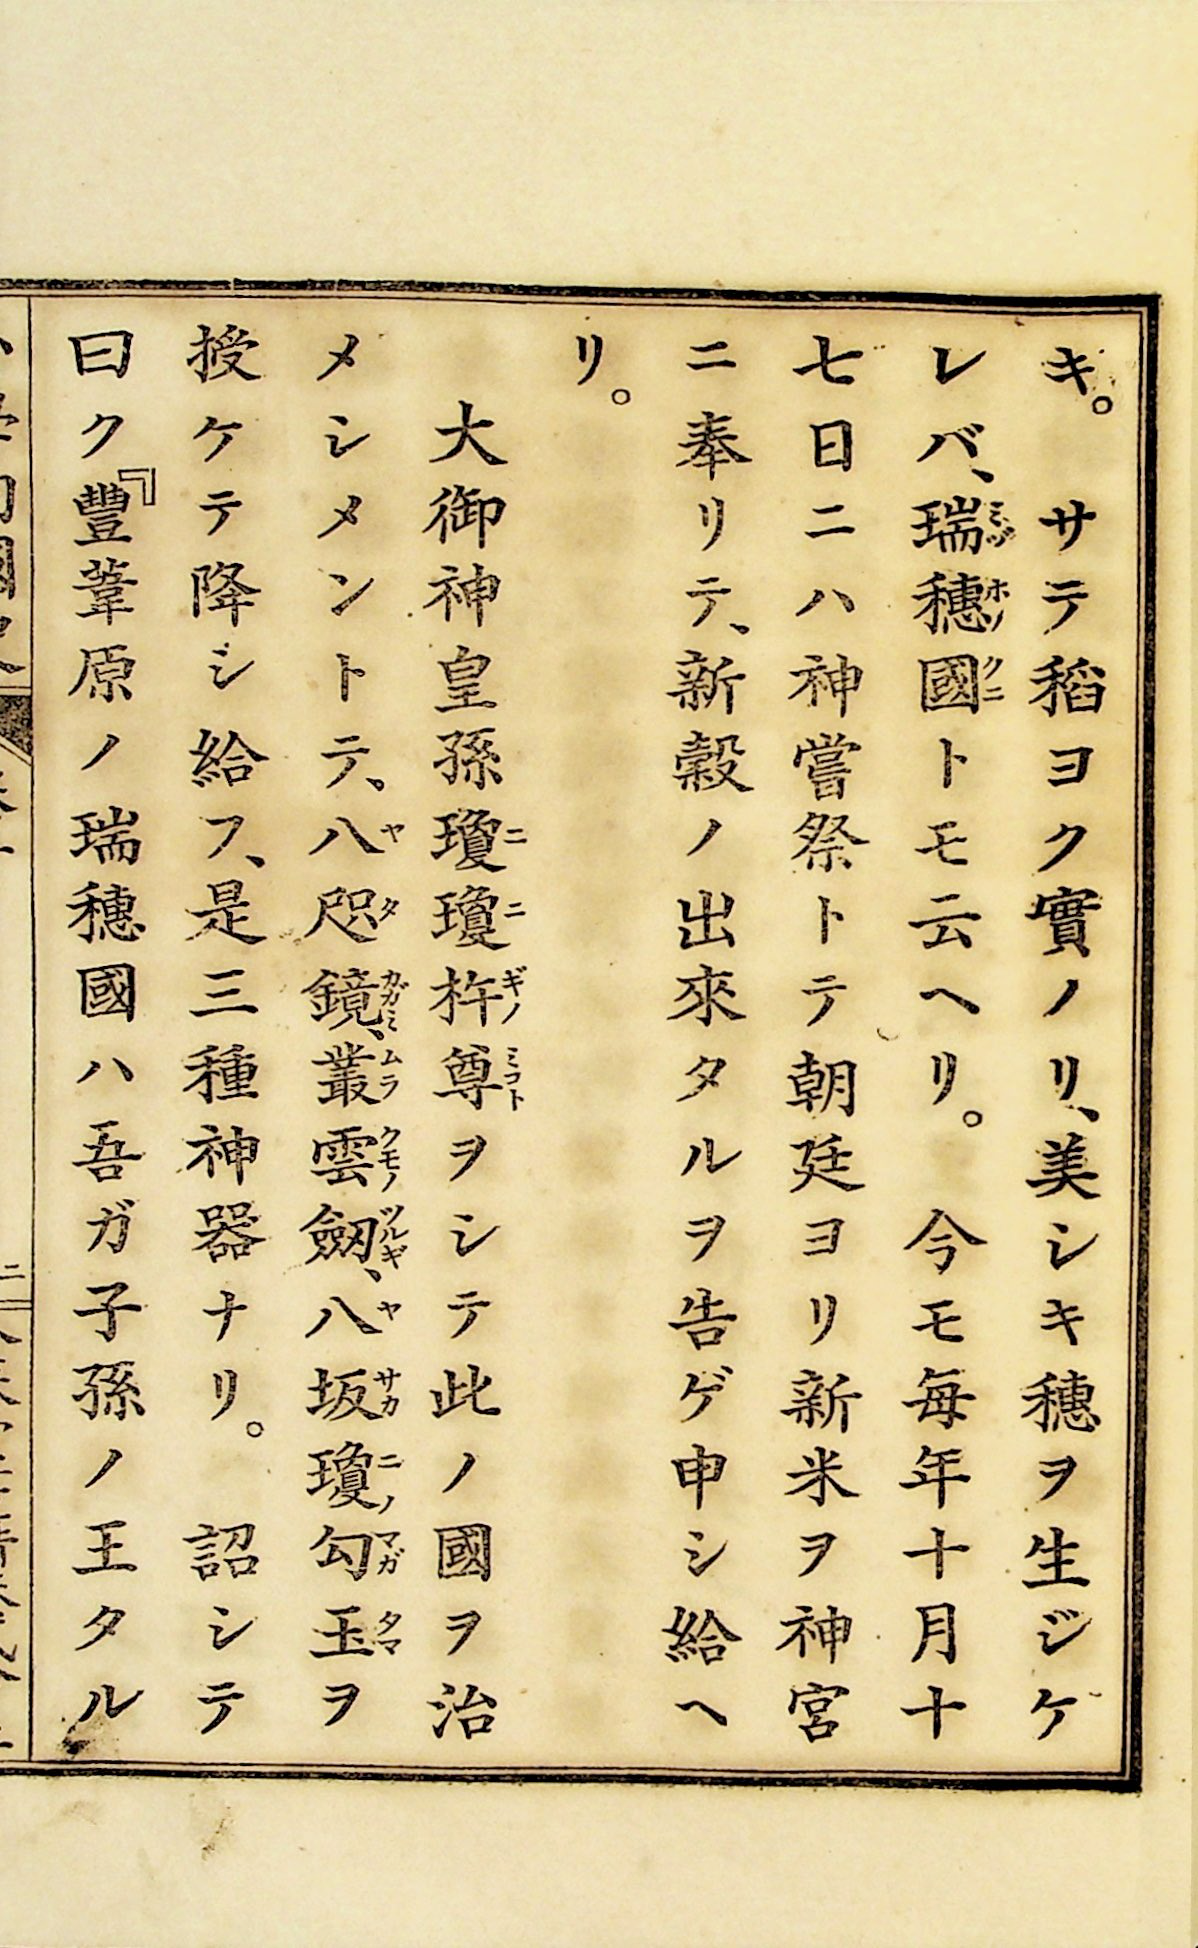 キ。サテ稻ヨク實ノリ、美シキ穗ヲ生ジケ
レバ、瑞穗國トモ云ヘリ。今モ毎年十月十
七日ニハ神嘗祭トテ朝廷ヨリ新米ヲ神宮
ニ奉リテ、新穀ノ出來タルヲ告ゲ申シ給ヘ
リ。
大御神皇孫瓊瓊杵尊ヲシテ此ノ國ヲ治
メシメントテ、八咫鏡、叢雲劒、八坂瓊勾玉ヲ
授ケテ降シ給フ、是三種神器ナリ。詔シテ
曰ク『豐葦原ノ瑞穗國ハ吾ガ子孫ノ王タル